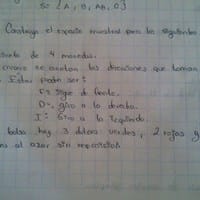 S: {A, B, AB, O}
Construya el espacio muestral para los siguientes
de 4 monedas.
se anotan las direcciones que toman
Estas pueden ser:
F= Sigue de frente.
D=, giro a la derecha.
I= Giro a la izquierda.
bolsa hay 3 dulces verdes, 2 rojas y
al azar sin reposición